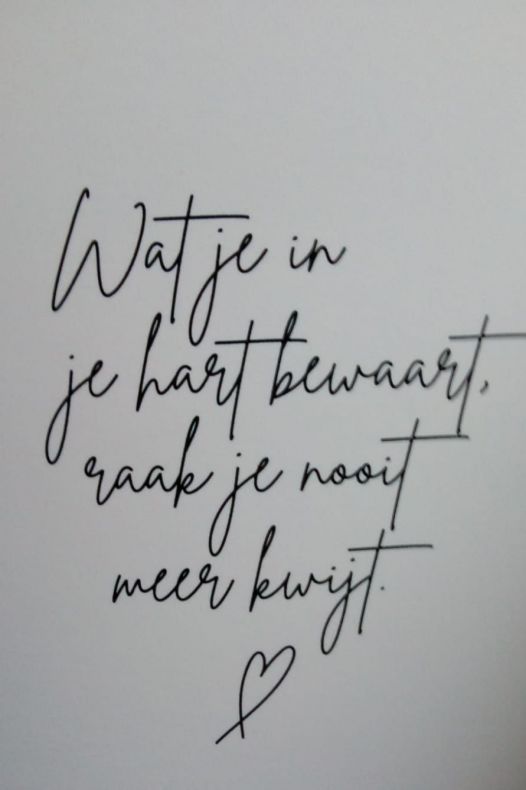 Wat je in
je hart bewaart,
raak je nooit
meer kwijt.